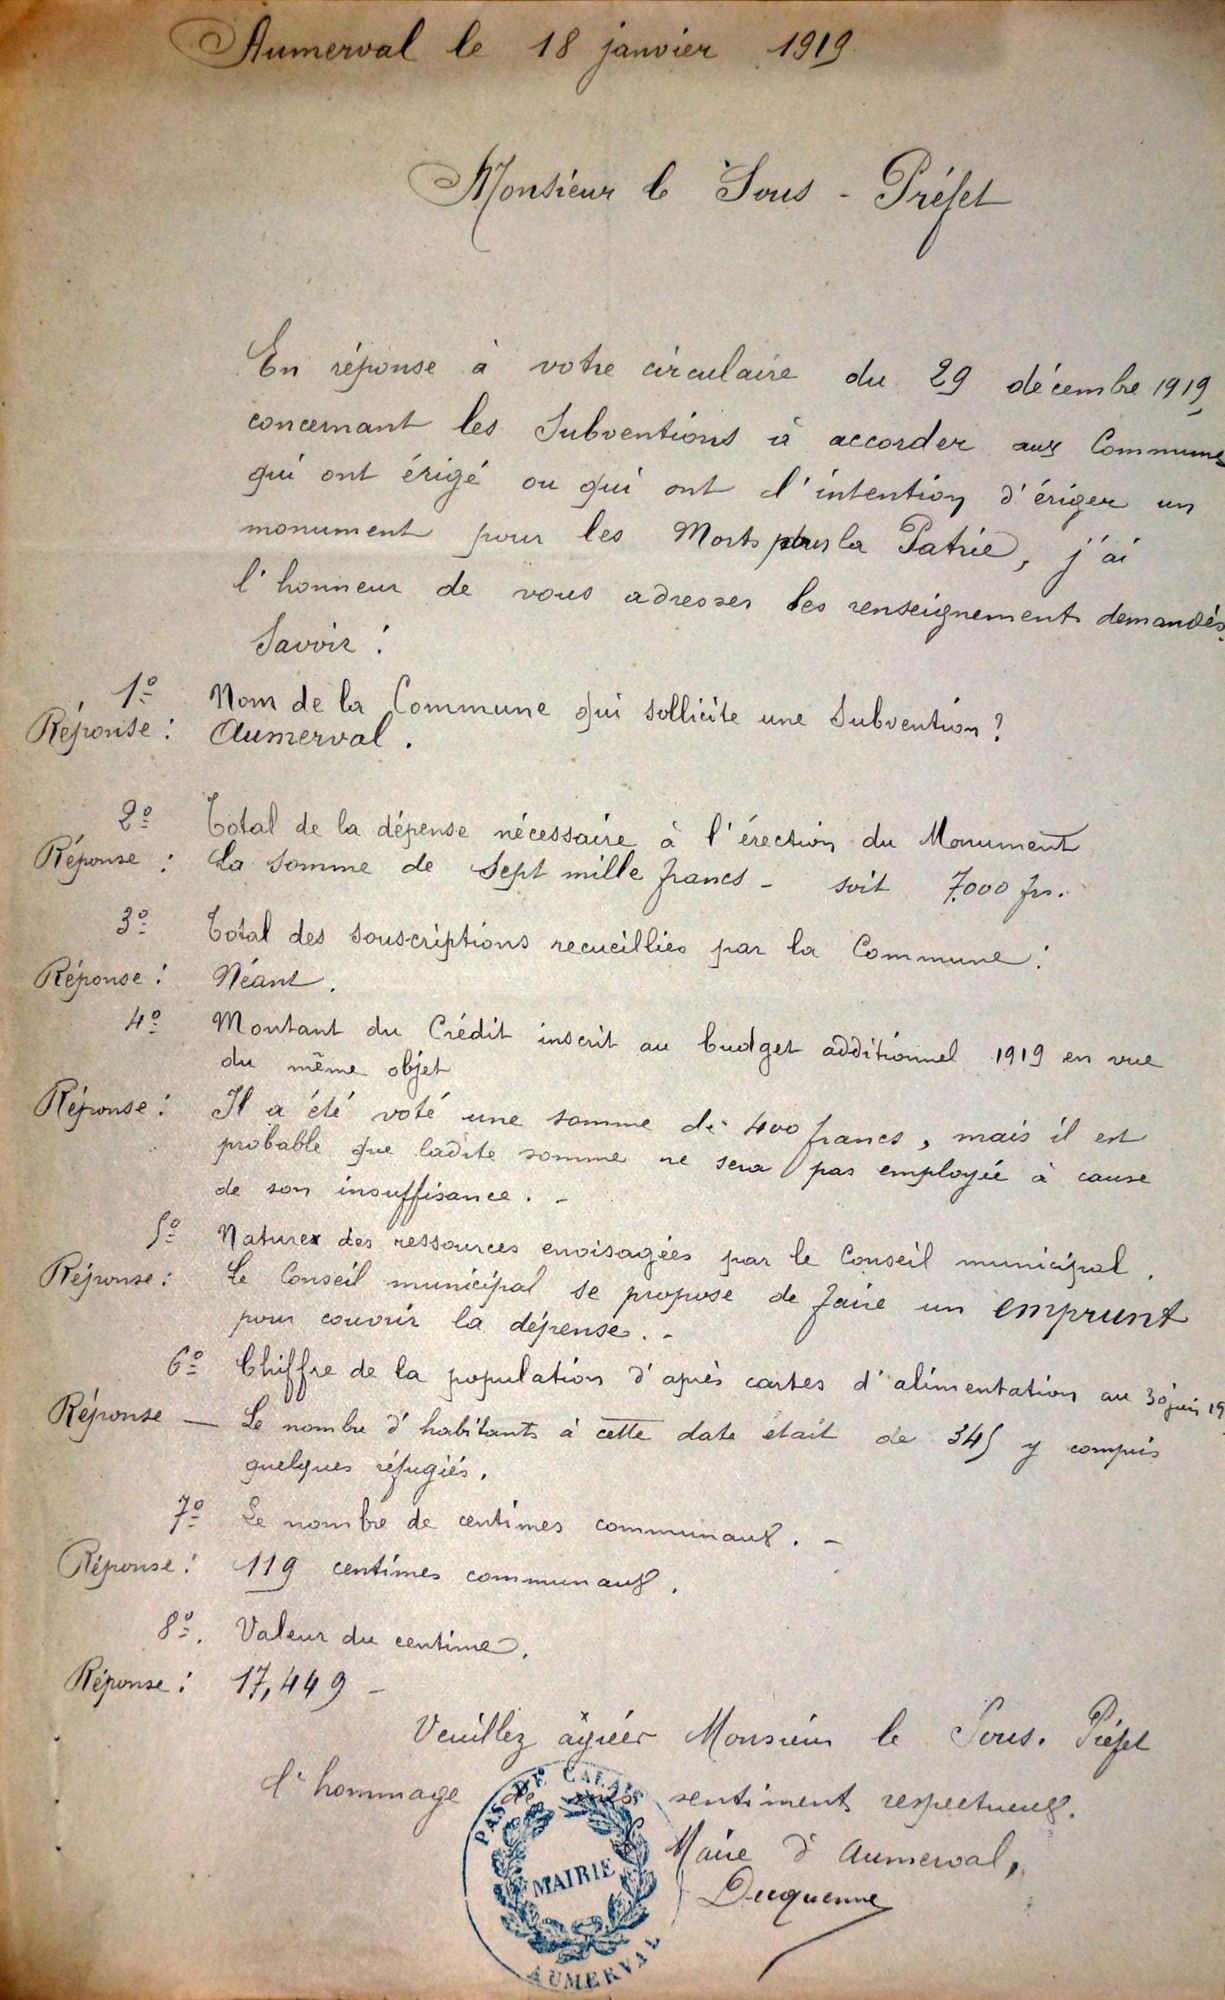 Aumerval le 18 janvier 1919
Monsieur le Sous-Préfet
En réponse à votre circulaire du 29 décembre 1919,
concernant les Subventions à accorder aux Communes
qui ont érigé ou qui ont l'intention d'ériger un
monument pour les Morts pour la Patrie, j'ai
l'honneur de vous adresser les renseignements demandés.
Savoir :
1º Nom de la Commune qui sollicite une Subvention ?
Réponse : Aumerval.
2º Total de la dépense nécessaire à l'érection du Monument
Réponse : La Somme de Sept mille francs - soit 7.000 frs.
3º Total des souscriptions recueillies par la Commune :
Réponse : Néant.
4º Montant du Crédit inscrit au budget additionnel 1919 en vue
du même objet
Réponse : Il a été voté une somme de 400 francs, mais il est
probable que ladite somme ne sera pas employée à cause
de son insuffisance. -
5º Nature des ressources envisagées par le Conseil municipal.
Réponse : Le Conseil municipal se propose de faire un emprunt
pour couvrir la dépense. -
6º Chiffre de la population d'après cartes d'alimentation au 30 juin 19
Réponse — Le nombre d'habitants à cette date était de 345 y compris
quelques réfugiés.
7º Le nombre de centimes communaux. -
Réponse : 119 centimes communaux.
8º. Valeur du centime.
Réponse : 17,449 -
Veuillez agréer Monsieur le Sous-Préfet
l'hommage de mes sentiments respectueux.
Maire d'Aumerval,
Ducquenne
PAS DE CALAIS
MAIRIE
AUMERVAL